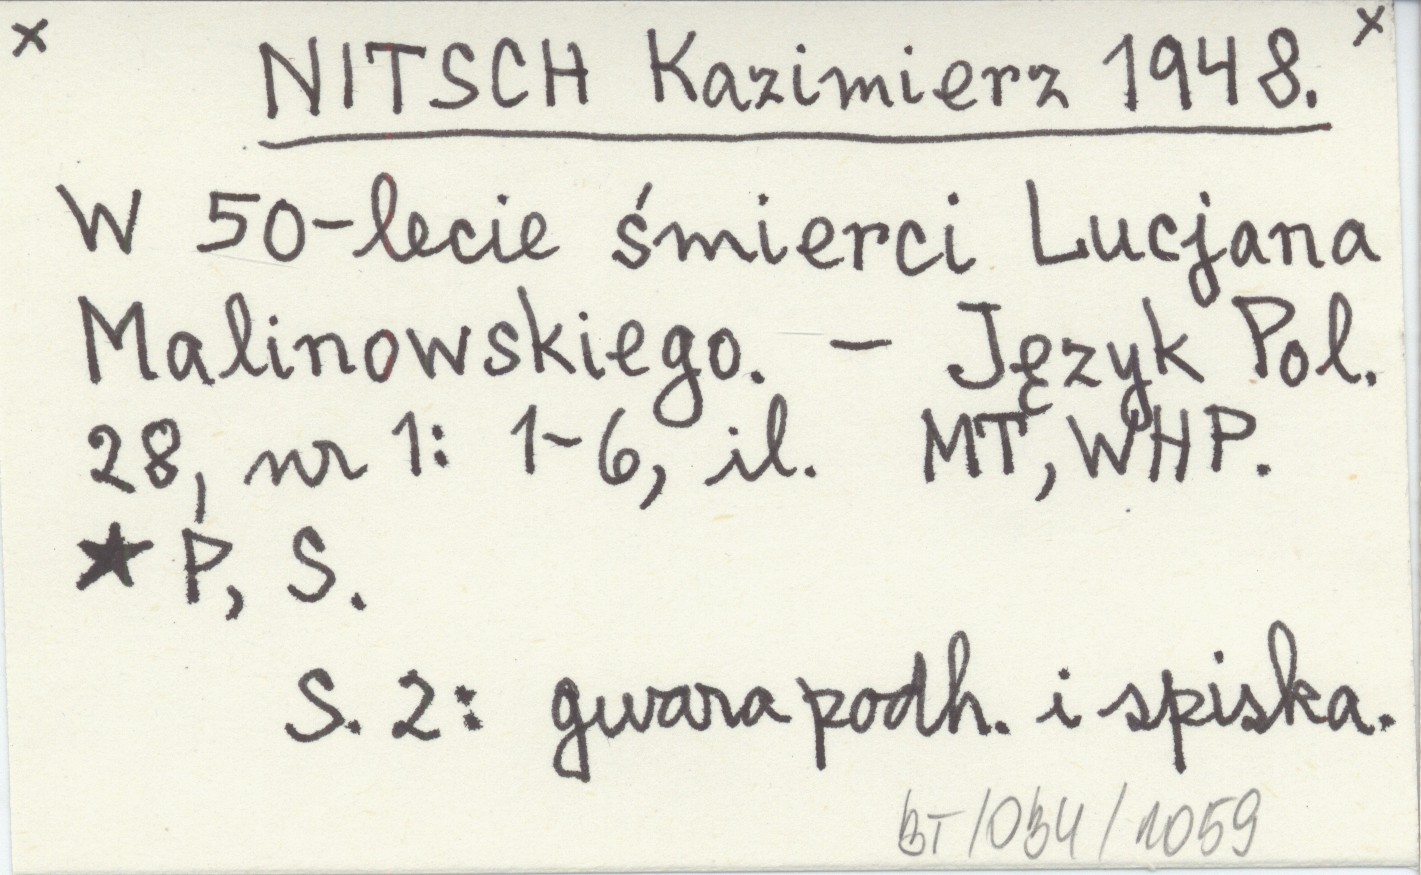 x x
NITSCH Kazimierz 1948.
W 50-lecie śmierci Lucjana
Malinowskiego. – Język Pol.
28, nr 1: 1-6, il. MT, WHP.
★ P, S.
S. 2: gwara podh. i spiska.
BT/034/1059